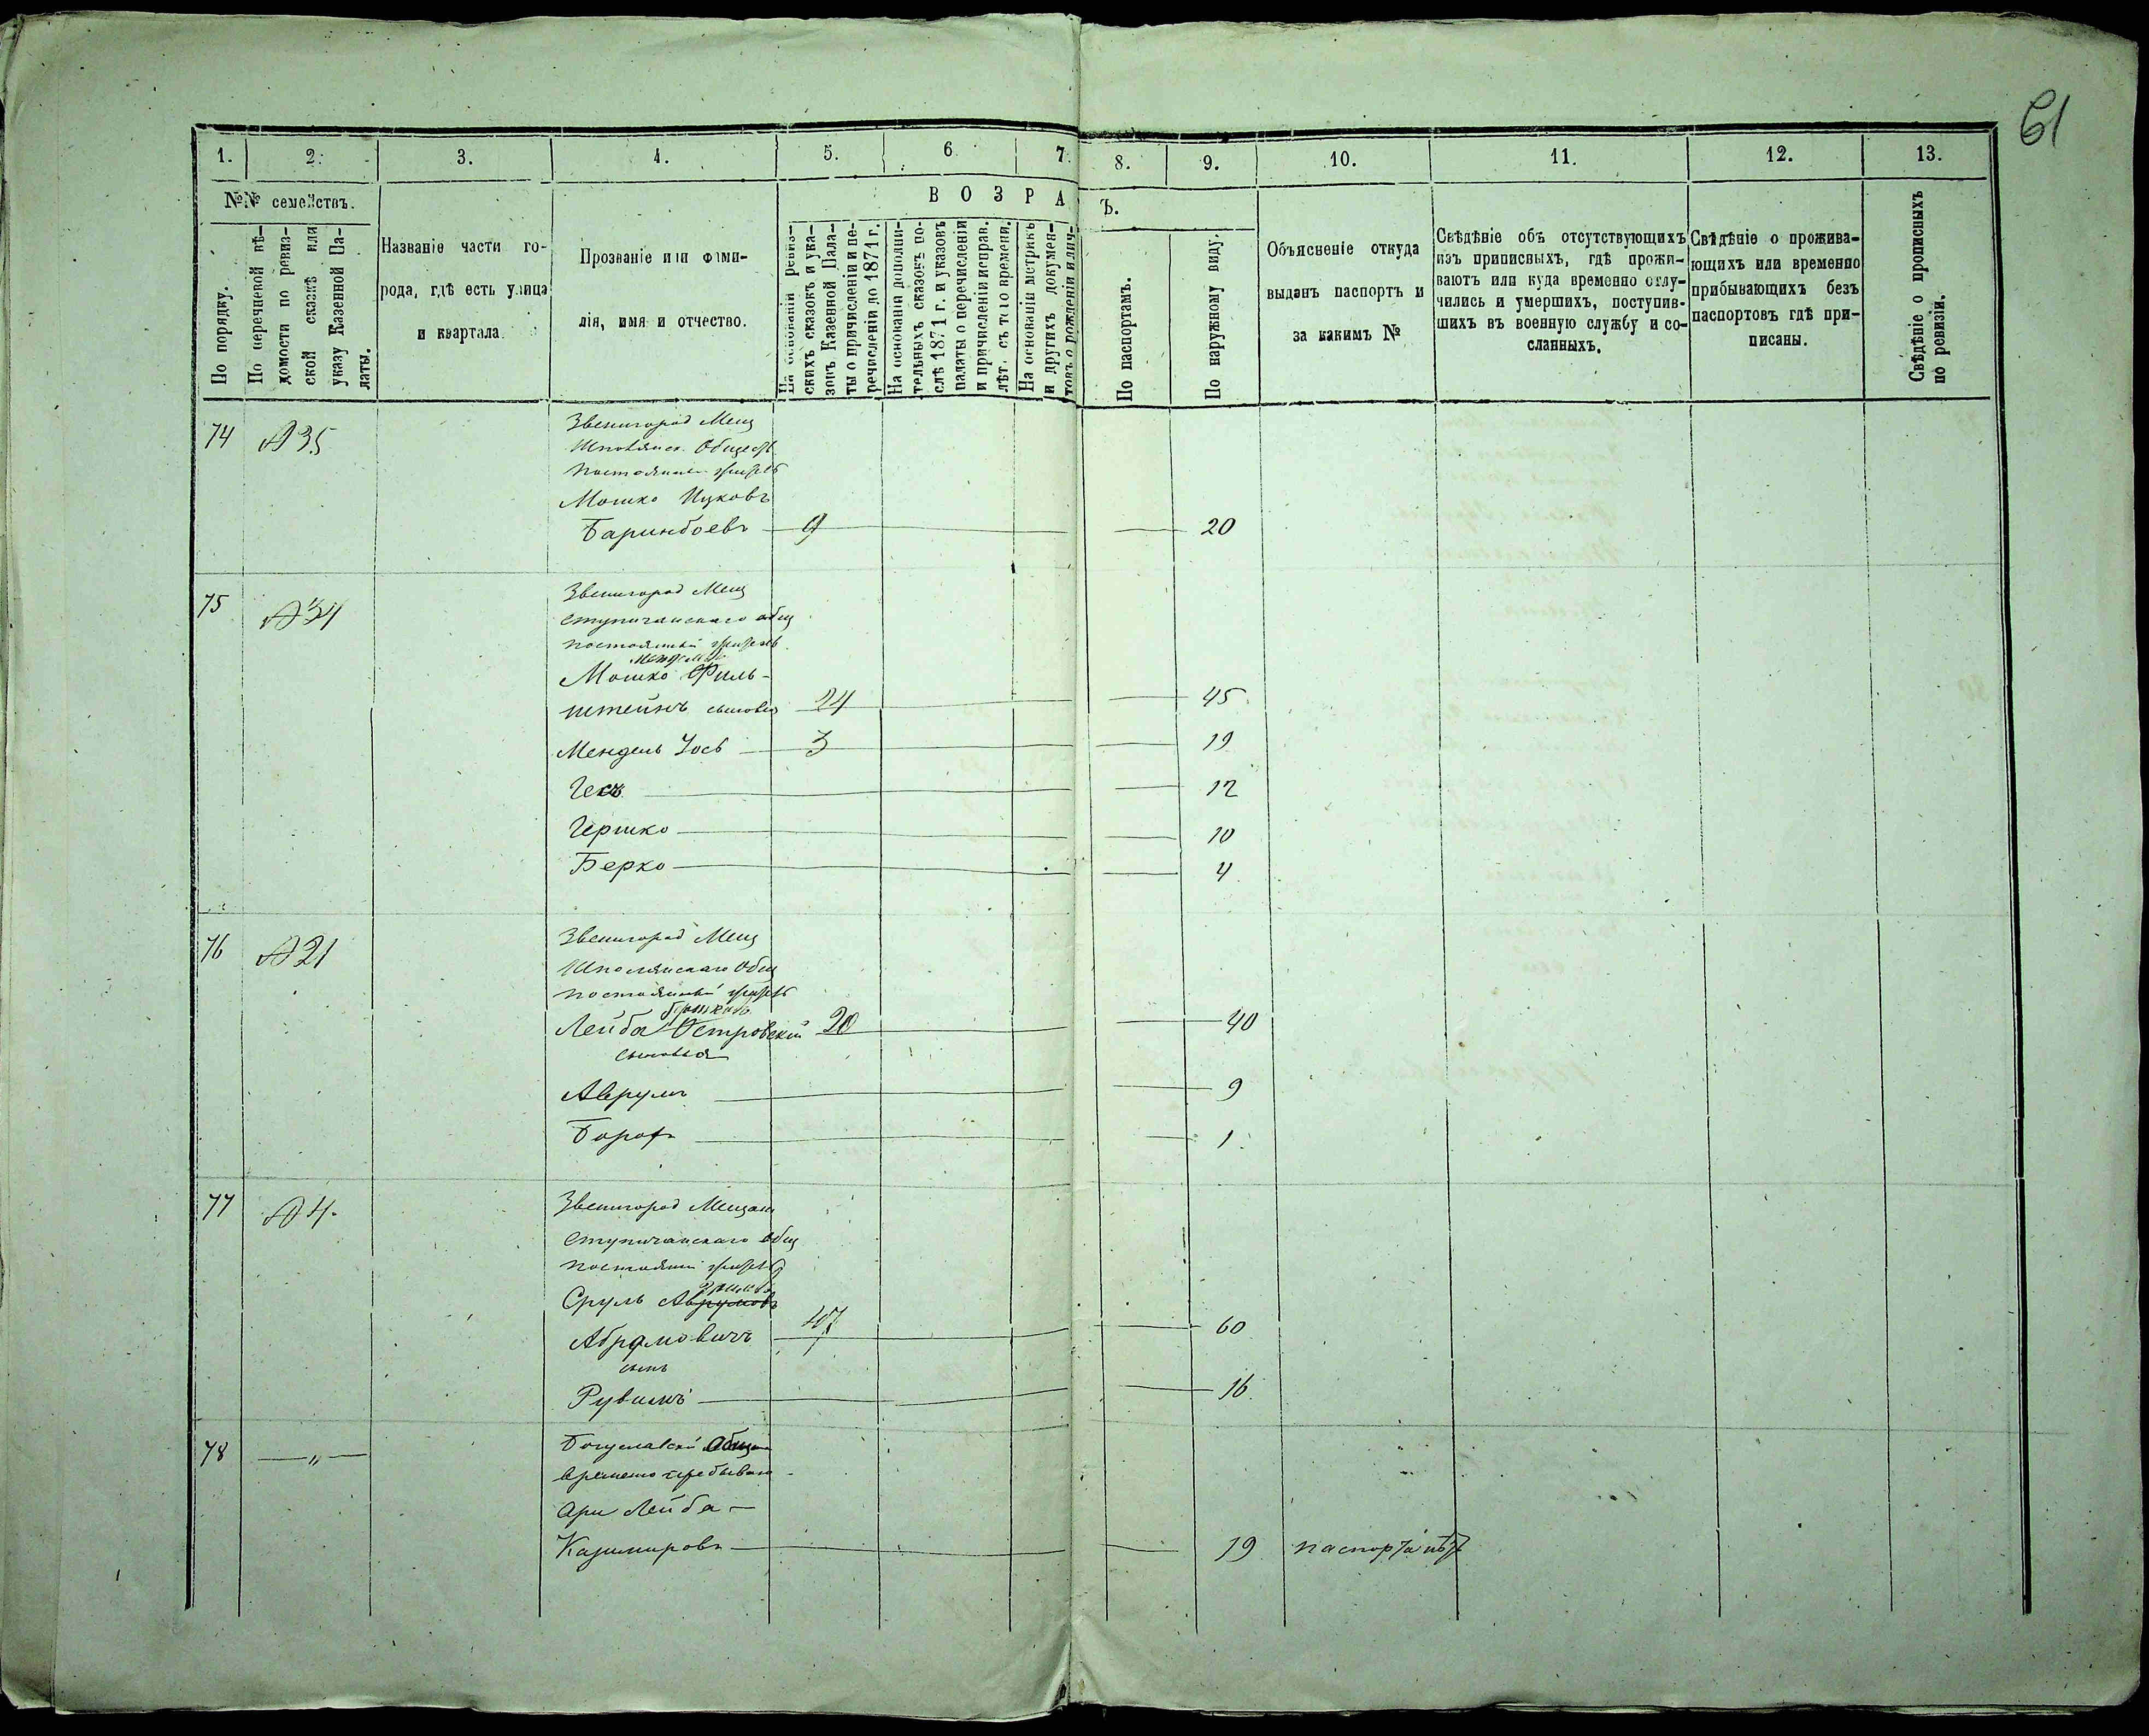 61
1. 2. 3. 4. 5. 6. 7. 8. 9. 10. 11. 12. 13.
№№ семействъ.
По порядку.
По перечневой вѣ-
домости по ревиз-
ской сказкѣ или
указу Казенной Па-
латы.
Названіе части го-
рода, гдѣ есть улица
и квартала
Прозваніе или фами-
лія, имя и отчество.
ВОЗРА
Ъ.
На основаніи ревиз-
скихъ сказокъ и ука-
зовъ Казенной Пала-
ты о причисленіи и пе-
речисленіи до 1871 г.
На основаніи дополни-
тельныхъ сказокъ по-
слѣ 1871 г. и указовъ
палаты о перечисленіи
и причисленіи исправ.
лѣт. съ того времени.
На основаніи метрикъ
и другихъ докумен-
товъ о рожденіи и лич-
По паспортамъ.
По наружному виду.
Объясненіе откуда
выданъ паспортъ и
за какимъ №
Свѣдѣніе объ отсутствующихъ
изъ приписныхъ, гдѣ прожи-
ваютъ или куда временно отлу-
чились и умершихъ, поступив-
шихъ въ военную службу и со-
сланныхъ.
Свѣдѣніе о прожива-
ющихъ или временно
прибывающихъ безъ
паспортовъ гдѣ при-
писаны.
Свѣдѣніе о прописныхъ
по ревизіи.
74 №35 Звенигород Мещ
Шполянск. Обществ
постоянны житель
Мошко Ицковъ
Баринбоевъ 9 20
75 №34 Звенигород Мещ
Ступичанскаго общ
постоянный житель
Мошко Филь-
штейнъ сыновья 24 45
Мендель Іось 3 19
12
Гершко 10
Берко 4
76 №21 Звенигород Мещ
Шполянскаго Общ
постоянный житель
Лейба Островский 20 40
сыновья
Аврумъ 9
Борох 1
77 №4. Звенигород Мещан
Ступичанскаго общ
постоянны житель
Сруль Аврумовъ
Абрамовичъ 47 60
сынъ
Рувимъ 16
78 — „ — Богуславский общ
временно пребываю-
Ари Лейба —
Казимировъ 19 паспорта нѣтъ